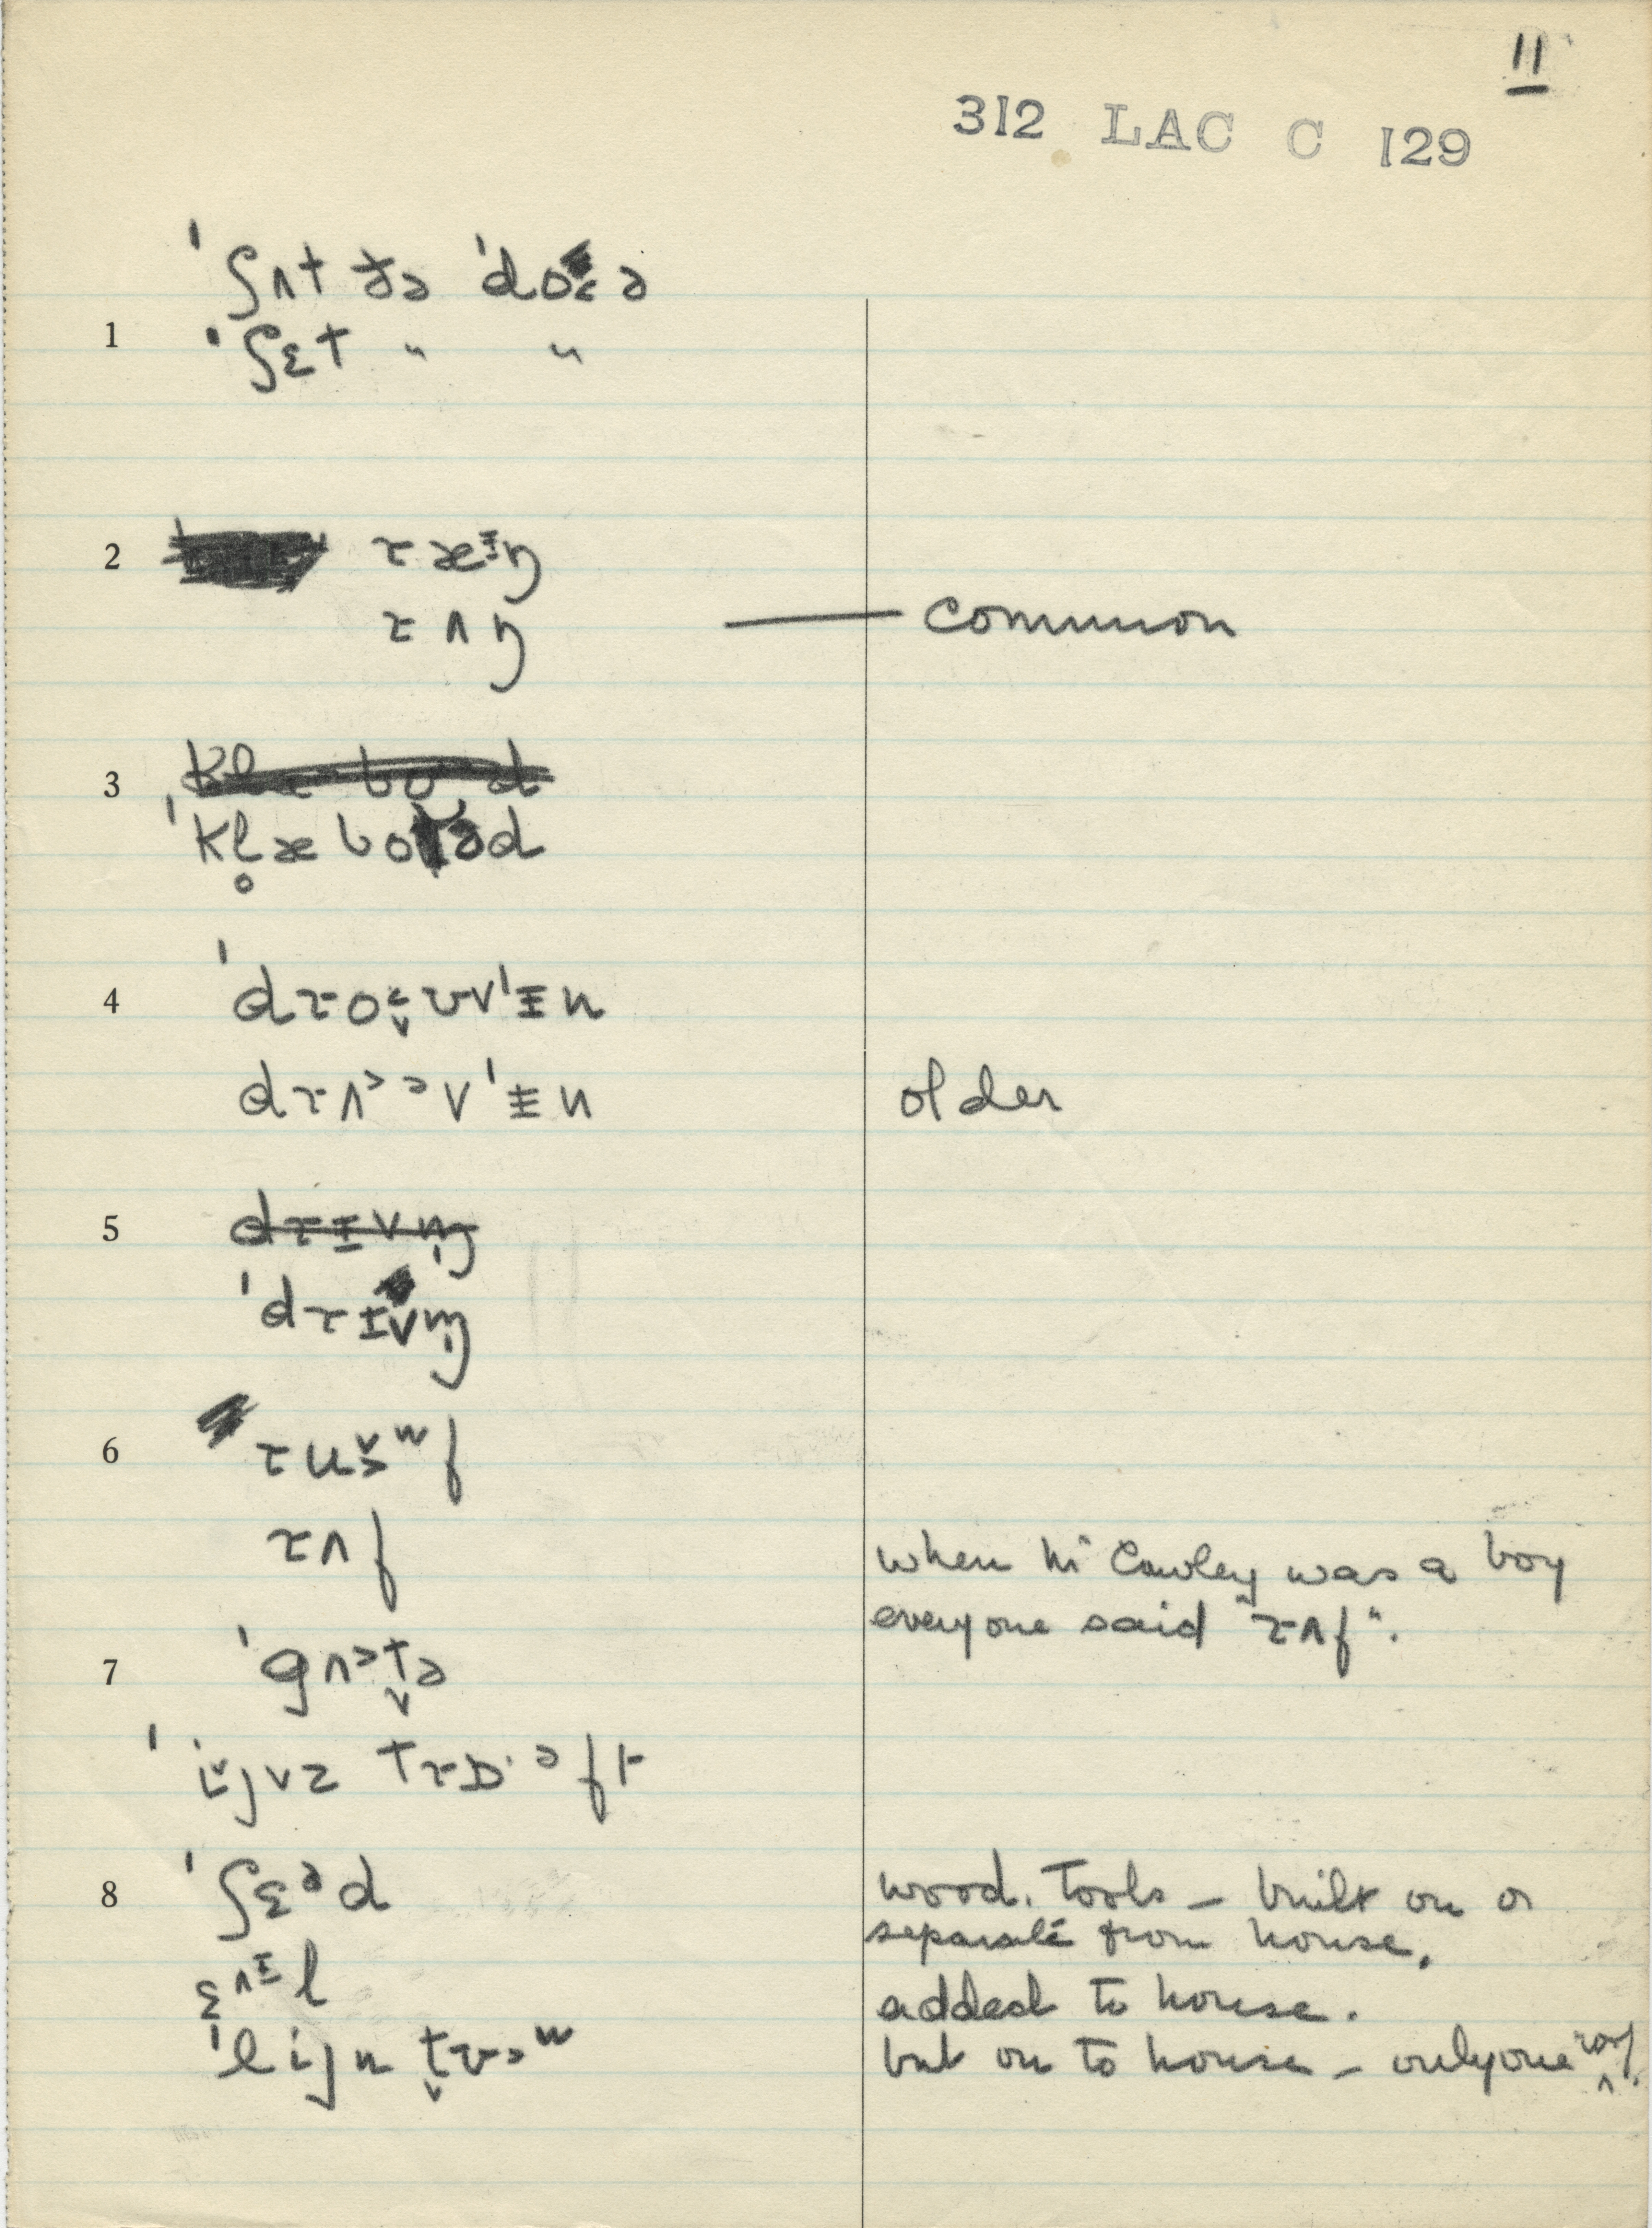 11
312 LAC C 129
ˈʃʌt ðə ˈdoɛə
1 ˈʃɛt " "
2 ræᵻŋ
rʌŋ — common
3
ˈkl̥æboəd
4 ˈdroɛ̬ʊvˈᵻn
drʌɔəvˈᵻn older
5 drᵻvn̩
ˈdrɪvn̩
6 ruɔ̌ʷf
rʌf
when Mr Cowley was a boy
everyone said "rʌf".
7 ˈgʌɔt̬ə
ˈijvz trɒˑəft
8 ˈʃɛəd wood. Tools – built on or
separate from house.
ɛʌᵻl added to house.
ˈlijn t̬ʊɔʷ but on to house – only one roof.